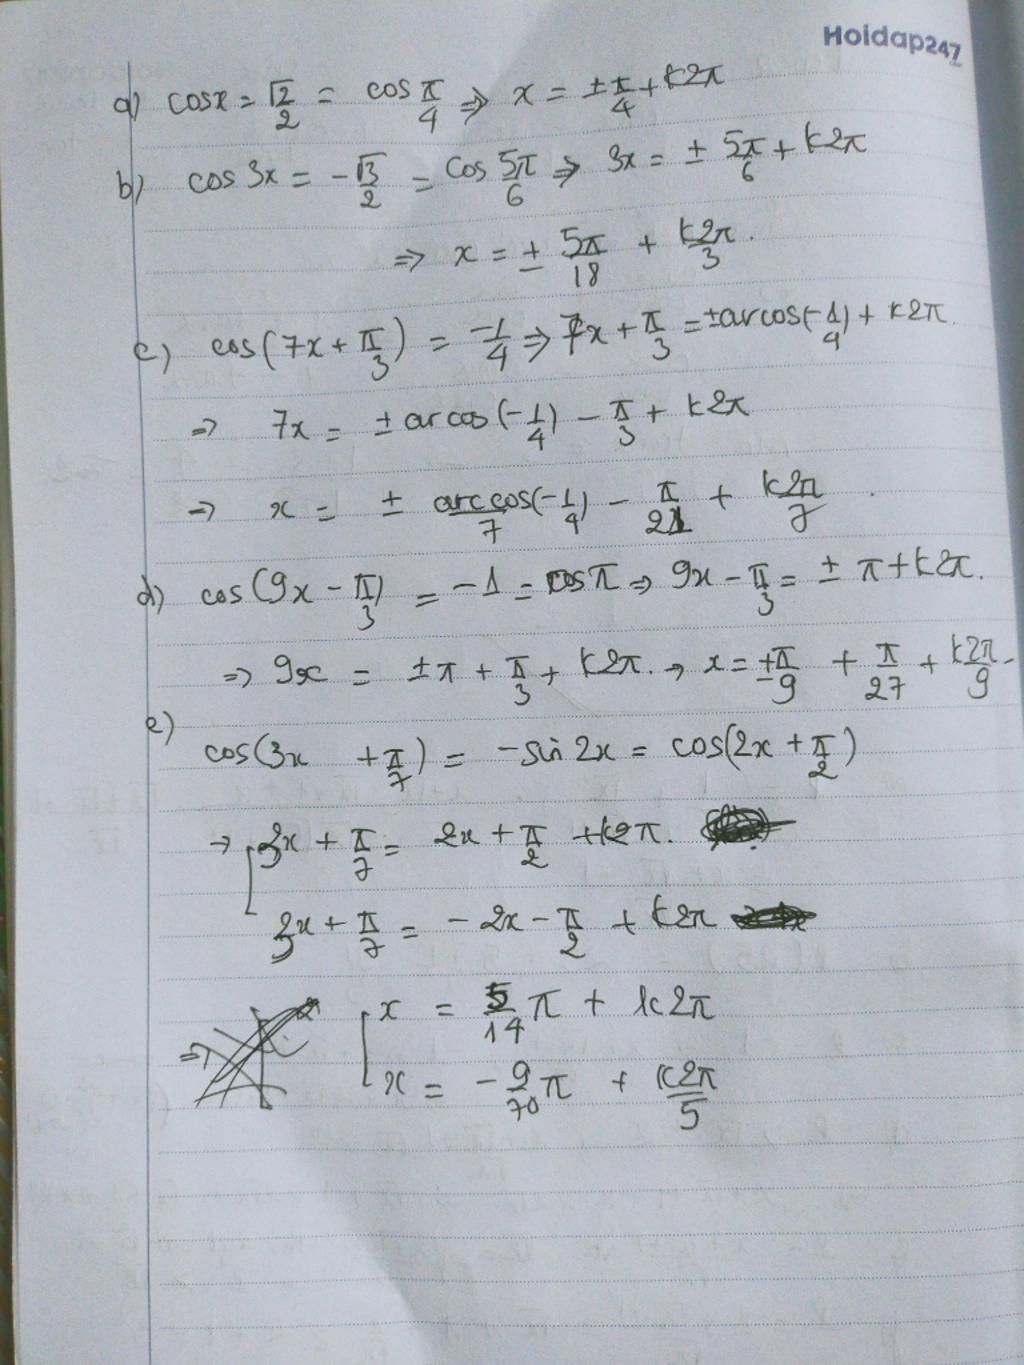 Hoidap247
a) cosx = √2/2 = cos π/4 => x = ± π/4 + k2π
b) cos 3x = -√3/2 = cos 5π/6 => 3x = ± 5π/6 + k2π
=> x = ± 5π/18 + k2π/3.
c) cos(7x + π/3) = -1/4 => 7x + π/3 = ±arcos(-1/4) + k2π.
=> 7x = ± arcos(-1/4) - π/3 + k2π
=> x = ± arccos(-1/4)/7 - π/21 + k2π/7.
d) cos(9x - π/3) = -1 = cosπ => 9x - π/3 = ± π + k2π.
=> 9x = ±π + π/3 + k2π. → x = ±π/9 + π/27 + k2π/9.
e)
cos(3x + π/7) = -sin 2x = cos(2x + π/2)
→ [ 3x + π/7 = 2x + π/2 + k2π.
3x + π/7 = - 2x - π/2 + k2π
=> [ x = 5/14 π + k2π
x = - 9/70 π + k2π/5